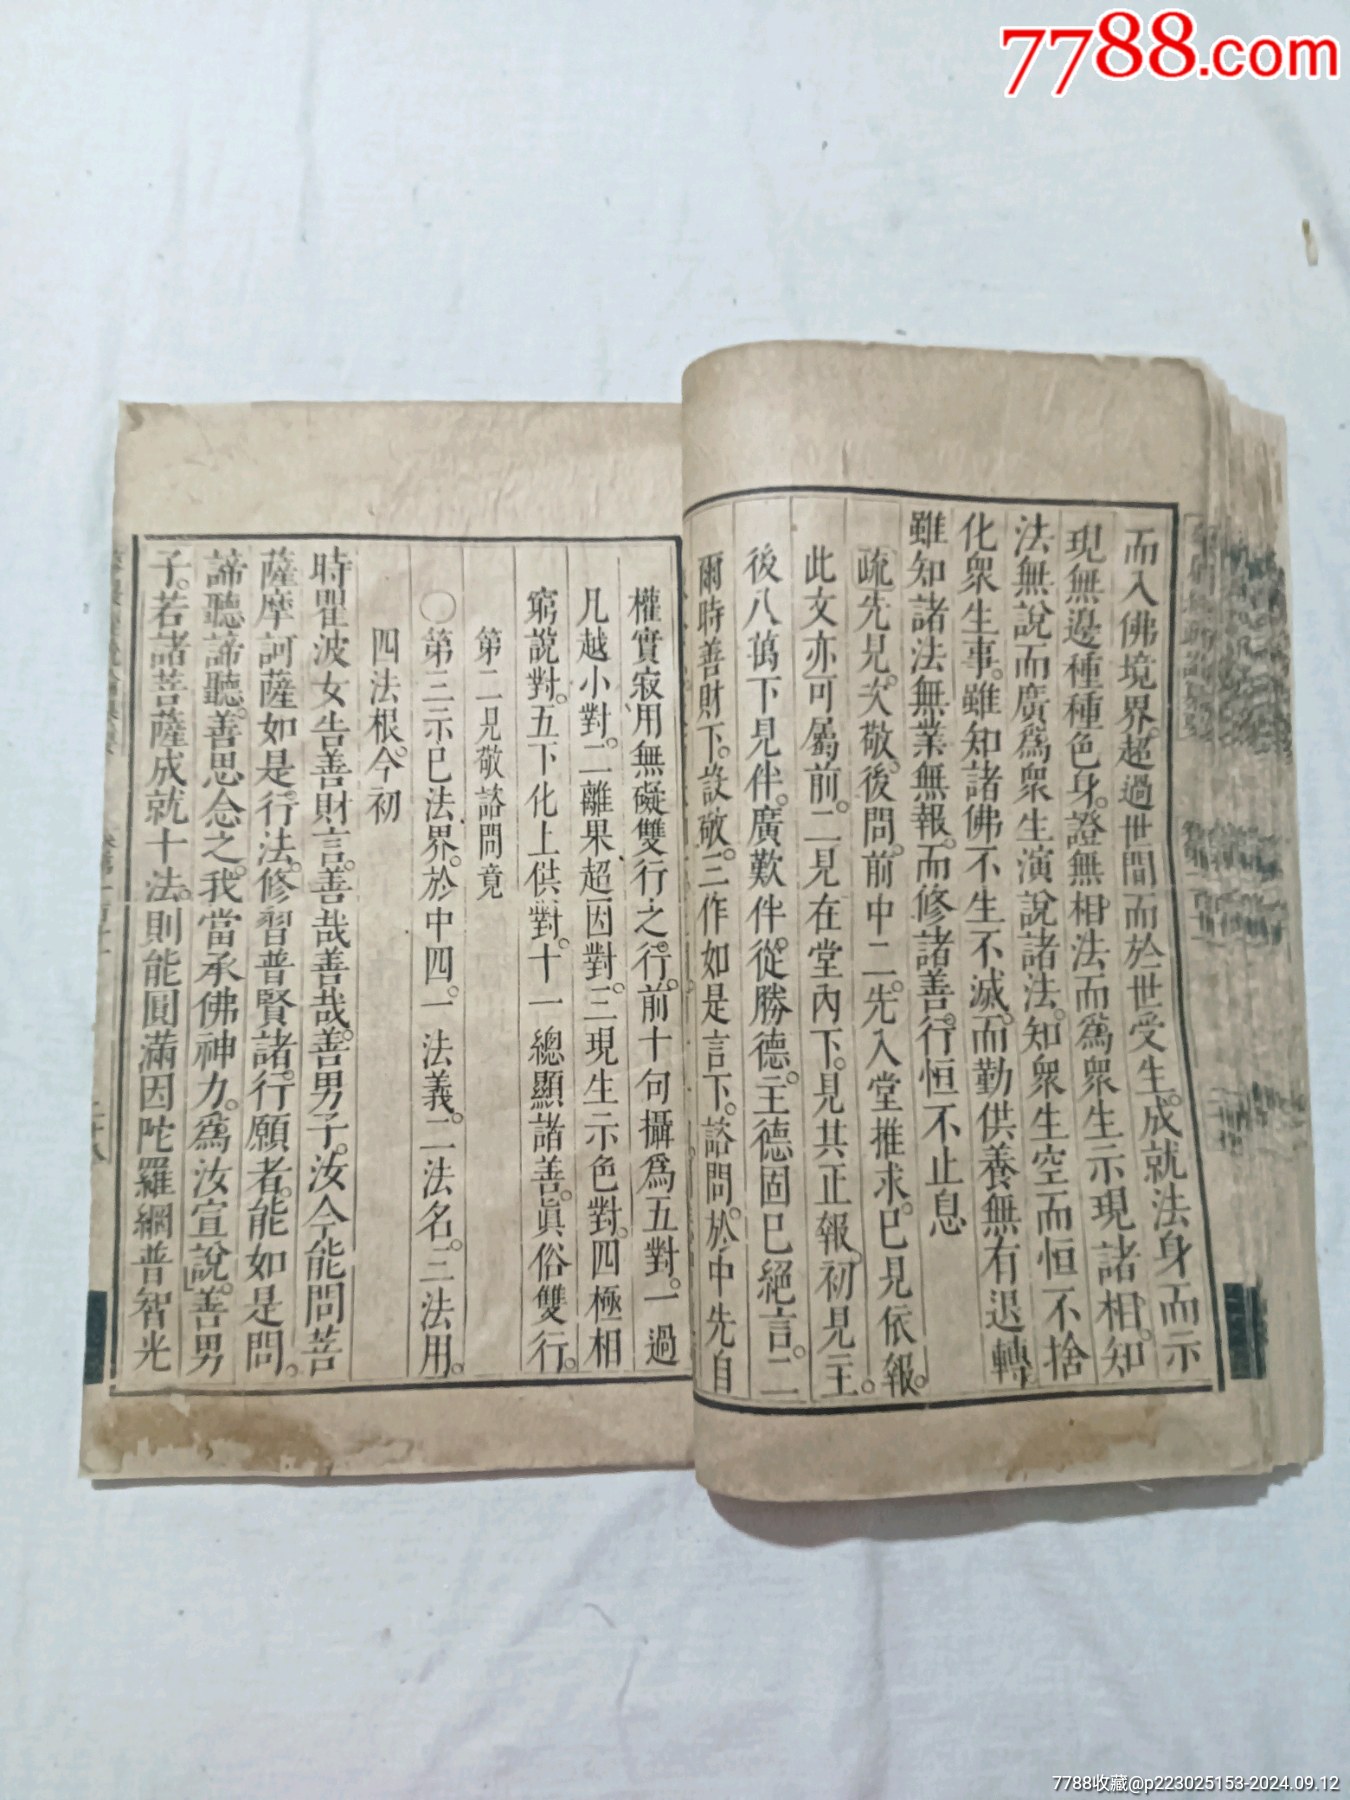 7788.com
而入佛境界。超過世間而於世受生。成就法身而示
現無邊種種色身。證無相法而爲衆生示現諸相。知
法無說而廣爲衆生演說諸法。知衆生空而恒不捨
化衆生事。雖知諸佛不生不滅。而勤供養無有退轉
雖知諸法無業無報。而修諸善。行恒不止息
疏先見。次敬。後問。前中二。先入堂推求。已見依報。
此文亦可屬前。二見在堂內下。見其正報。初見主。
後八萬下見伴。廣歎伴。從勝德。主德固已絕言。二
爾時善財下。設敬。三作如是言下。諮問。於中先自
權實寂用無礙雙行之。行。前十句攝爲五對。一過
凡越小對。二離果超因對。三現生示色對。四極相
窮說對。五下化上供對。十一總顯諸善。眞俗雙行。
第二見敬諮問竟
〇第三示已法界。於中四。一法義。二法名。三法用。
四法根。今初
時瞿波女告善財言。善哉善哉。善男子。汝今能問菩
薩摩訶薩如是。行法。修習普賢諸。行願者。能如是問。
諦聽諦聽。善思念之。我當承佛神力。爲汝宣說。善男
子。若諸菩薩成就十法。則能圓滿因陀羅網普智光
7788收藏@p223025153-2024.09.12